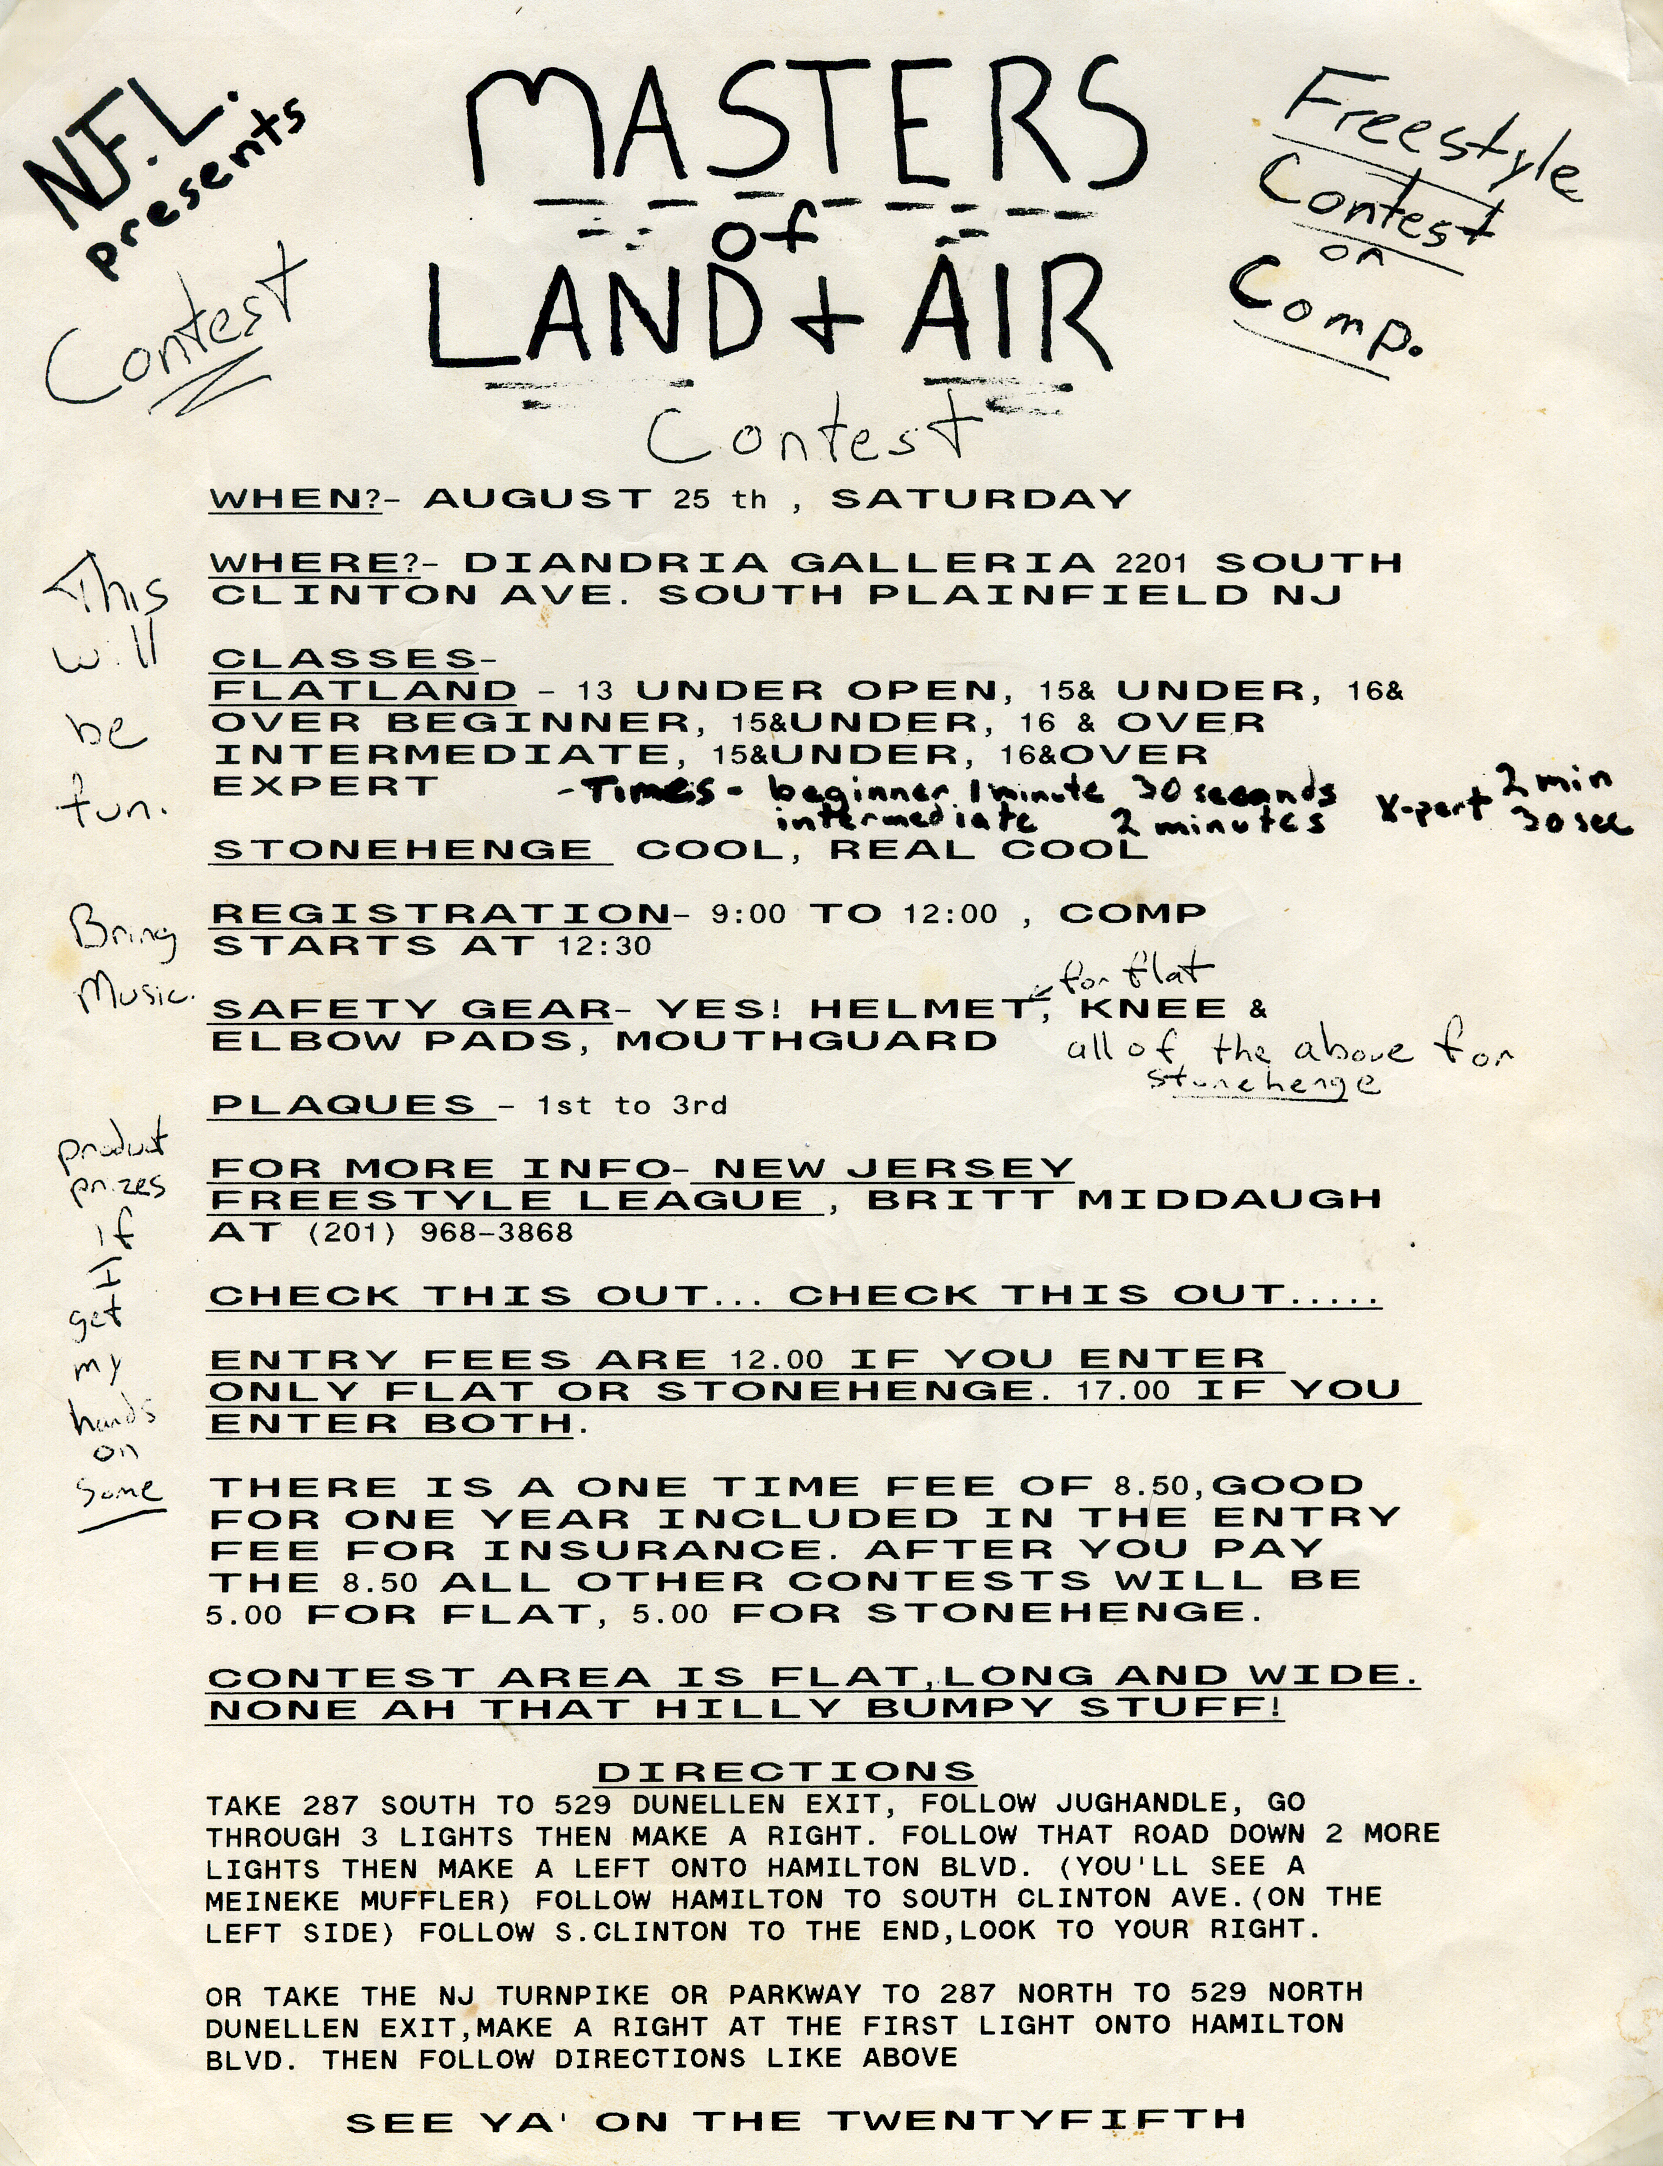 N.F.L.
presents
Contest
MASTERS
of
LAND + AIR
Contest
Freestyle
Contest
on
Comp.
WHEN?- AUGUST 25 th , SATURDAY
WHERE?- DIANDRIA GALLERIA 2201 SOUTH
CLINTON AVE. SOUTH PLAINFIELD NJ
This
will
be
fun.
CLASSES-
FLATLAND - 13 UNDER OPEN, 15& UNDER, 16&
OVER BEGINNER, 15&UNDER, 16 & OVER
INTERMEDIATE, 15&UNDER, 16&OVER
EXPERT -Times- beginner 1 minute 30 seconds X-pert 2 min
intermediate 2 minutes 30 sec
STONEHENGE COOL, REAL COOL
Bring
Music.
REGISTRATION- 9:00 TO 12:00 , COMP
STARTS AT 12:30
for flat
SAFETY GEAR- YES! HELMET, KNEE &
ELBOW PADS, MOUTHGUARD all of the above for
stonehenge
PLAQUES - 1st to 3rd
product
prizes
if
I
get
my
hands
on
some
FOR MORE INFO- NEW JERSEY
FREESTYLE LEAGUE , BRITT MIDDAUGH
AT (201) 968-3868
CHECK THIS OUT... CHECK THIS OUT.....
ENTRY FEES ARE 12.00 IF YOU ENTER
ONLY FLAT OR STONEHENGE. 17.00 IF YOU
ENTER BOTH.
THERE IS A ONE TIME FEE OF 8.50,GOOD
FOR ONE YEAR INCLUDED IN THE ENTRY
FEE FOR INSURANCE. AFTER YOU PAY
THE 8.50 ALL OTHER CONTESTS WILL BE
5.00 FOR FLAT, 5.00 FOR STONEHENGE.
CONTEST AREA IS FLAT,LONG AND WIDE.
NONE AH THAT HILLY BUMPY STUFF!
DIRECTIONS
TAKE 287 SOUTH TO 529 DUNELLEN EXIT, FOLLOW JUGHANDLE, GO
THROUGH 3 LIGHTS THEN MAKE A RIGHT. FOLLOW THAT ROAD DOWN 2 MORE
LIGHTS THEN MAKE A LEFT ONTO HAMILTON BLVD. (YOU'LL SEE A
MEINEKE MUFFLER) FOLLOW HAMILTON TO SOUTH CLINTON AVE.(ON THE
LEFT SIDE) FOLLOW S.CLINTON TO THE END,LOOK TO YOUR RIGHT.
OR TAKE THE NJ TURNPIKE OR PARKWAY TO 287 NORTH TO 529 NORTH
DUNELLEN EXIT,MAKE A RIGHT AT THE FIRST LIGHT ONTO HAMILTON
BLVD. THEN FOLLOW DIRECTIONS LIKE ABOVE
SEE YA' ON THE TWENTYFIFTH